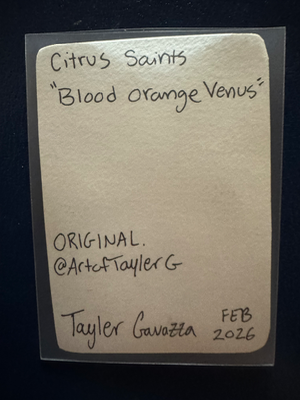 Citrus Saints
"Blood Orange Venus"
ORIGINAL.
@ArtofTaylerG
Tayler Gavazza
FEB
2026